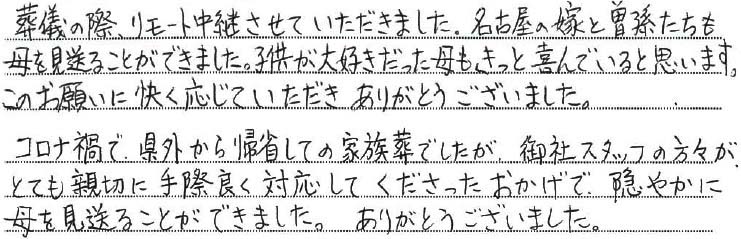 葬儀の際、リモート中継させていただきました。名古屋の嫁と曽孫たちも
母を見送ることができました。子供が大好きだった母もきっと喜んでいると思います。
このお願いに快く応じていただきありがとうございました。
コロナ禍で、県外から帰省しての家族葬でしたが、御社スタッフの方々が、
とても親切に手際良く対応してくださったおかげで、穏やかに
母を見送ることができました。ありがとうございました。